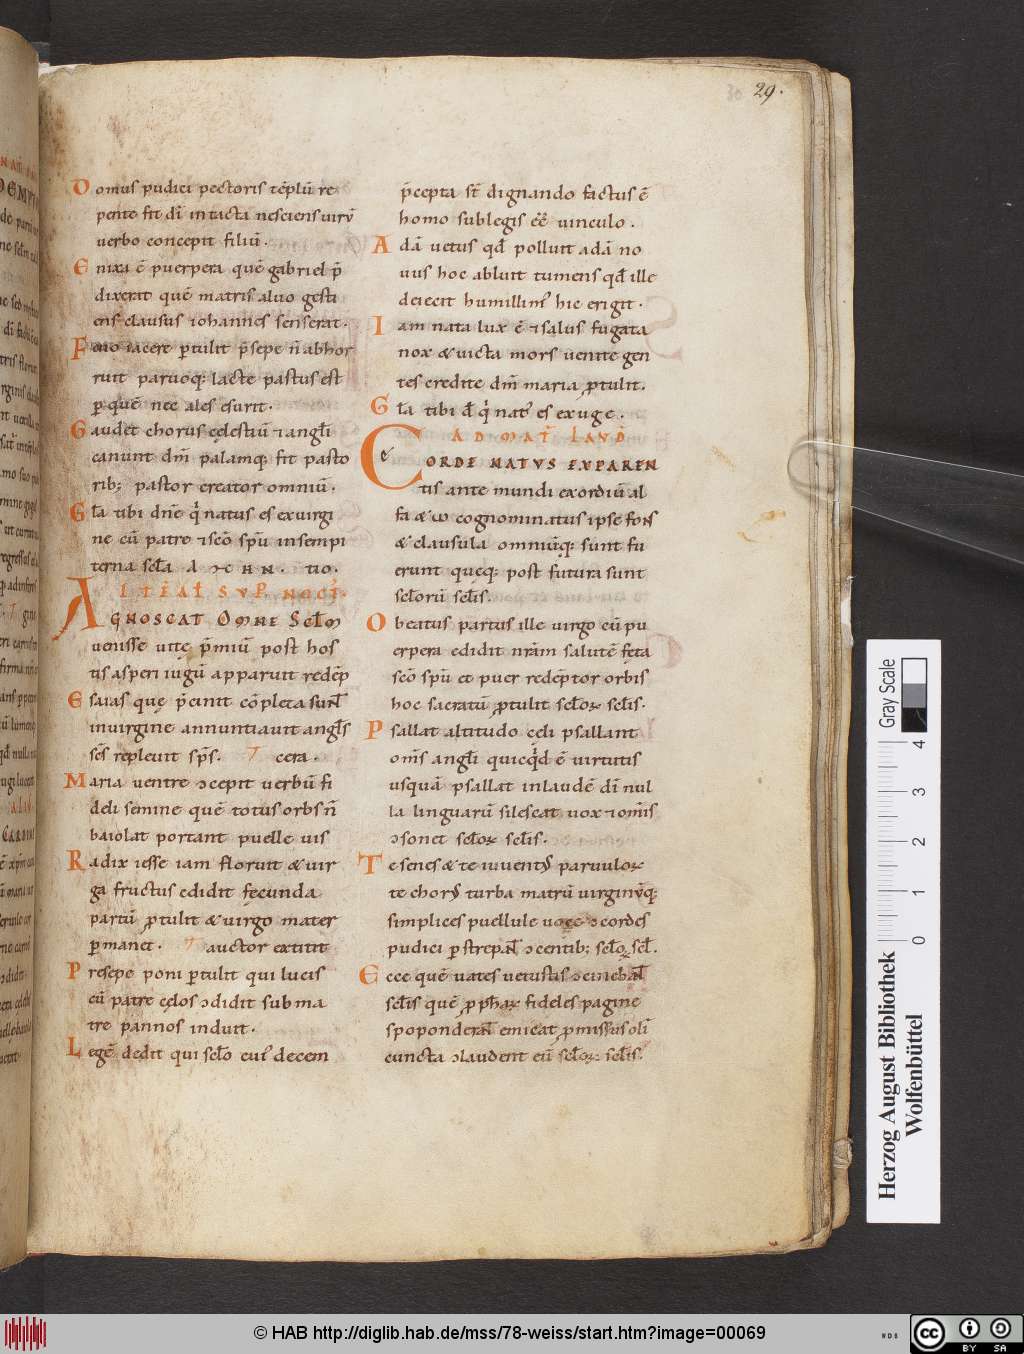 29.
Domus pudici pectoris tẽplũ re
pente fit dĩ intacta nesciens uirũ
verbo concepit filiũ.
Enixa ẽ puerpera quẽ gabriel p̃
dixerat quẽ matris aluo gesti
ens clausus iohannes senserat.
Feno iacere ꝑtulit p̃sepe ñ abhor
ruit paruoq; lacte pastus est
ꝑ quẽ nec ales esurit.
Gaudet chorus cęlestiũ & angłi
canunt dm̃ palamq; fit pasto
rib; pastor creator omniũ.
Głã tibi dñe q̃ natus es exuirgi
ne cũ patre & sc̃o sp̃u insempi
terna secła
ALITẼAT̃ SVP̃ NOCT̃.
AGNOSCAT OMNE Secłm
uenisse uitę p̃miũ post hos
tis asperi iugũ apparuit redẽp
Esaias quę p̃cinit cõpleta sunł
inuirgine annuntiauit angłs
sc̃s repleuit sp̃s. cera.
Maria uentre ↄcepit verbũ fi
deli semine quẽ totus orbs ñ
baiolat portant puelle uis
Radix iesse iam floruit & uir
ga fructus edidit fęcunda
partũ ꝓtulit & uirgo mater
ꝑmanet. auctor extitit
Presepe poni ꝑtulit qui lucis
cũ patre cęlos ↄdidit sub ma
tre pannos induit.
Legẽ dedit qui secło cui' decem
p̃cepta st̃ dignando factus ẽ
homo sub legis eẽ uinculo.
Adã uetus qđ polluit adã no
uus hoc abluit tumens qđ ille
deiecit humillim' hic erigit.
Iam nata lux ẽ & salus fugata
nox & uicta mors uenite gen
tes credite dm̃ maria ꝓtulit.
Głã tibi đ q̃ nat' es exuge.
AD MAT̃ LAVD̃
CORDE NATVS EXPAREN
tis ante mundi exordiũ al
fa & ω cognominatus ipse fons
& clausula omniũq; sunt fu
erunt queq; post futura sunt
secłorũ secłis.
O beatus partus ille uirgo cũ pu
erpera edidit nr̃am salutẽ fęta
sc̃o sp̃u et puer redẽptor orbis
hoc sacratũ ꝓtulit secłoꝝ secłis.
Psallat altitudo cęli psallant
om̃s angłi quicq̃d ẽ uirtutis
usquã psallat inlaudẽ dĩ nul
la linguarũ silescat uox & om̃is
ↄsonet secłoꝝ secłis.
Te senes & te iuuent' paruuloꝝ
te chor' turba matrũ virginũq;
simplices puellule uoce ↄcordes
pudici ꝑstrepanł ↄcentib; secłoꝝ secł.
Ecce quẽ uates uetustis ↄcinebanł
secłis quẽ ꝓphaꝝ fideles pagine
spoponderanł emicat ꝓmissus oli
cuncta ↄlaudent eũ secłoꝝ secłis.
Gray Scale
0 1 2 3 4
Herzog August Bibliothek
Wolfenbüttel
© HAB http://diglib.hab.de/mss/78-weiss/start.htm?image=00069
cc BY SA